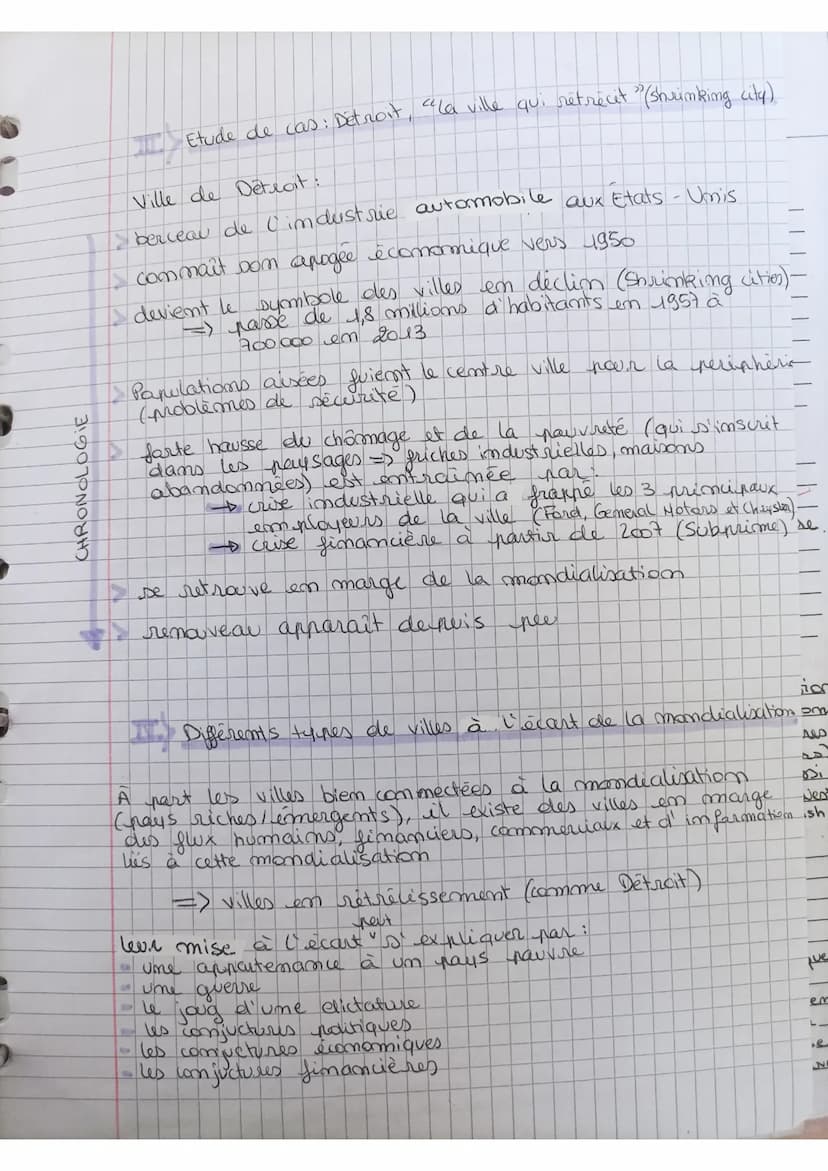 III) Etude de cas : Détroit, "la ville qui rétrécit" (Shrimking city)
Ville de Détroit :
berceau de l'industrie automobile aux États-Unis
connaît son apogée économique vers 1950
devient le symbole des villes en déclin (Shrinking cities)
=> passe de 1,8 millions d'habitants en 1957 à
700 000 em 2013
Populations aisées fuient le centre ville pour la périphérie
(problèmes de sécurité)
forte hausse du chômage et de la pauvreté (qui s'inscrit
dans les paysages => friches industrielles, maisons
abandonnées) est entraînée par :
→ crise industrielle qui a frappé les 3 principaux
employeurs de la ville (Ford, General Motors et Chrysler)
→ crise financière à partir de 2007 (Subprime) se
se retrouve en marge de la mondialisation
renouveau apparaît depuis peu
CHRONOLOGIE
IV) Différents types de villes à l'écart de la mondialisation
À part les villes bien connectées à la mondialisation
(pays riches/émergents), il existe des villes en marge
des flux humains, financiers, commerciaux et d'information
liés à cette mondialisation
=> villes en rétrécissement (comme Détroit)
peut
leur mise à l'écart s'expliquer par :
- une appartenance à un pays pauvre
- une guerre
- le joug d'une dictature
- les conjuctures politiques
- les conjuctures économiques
- les conjuctures financières